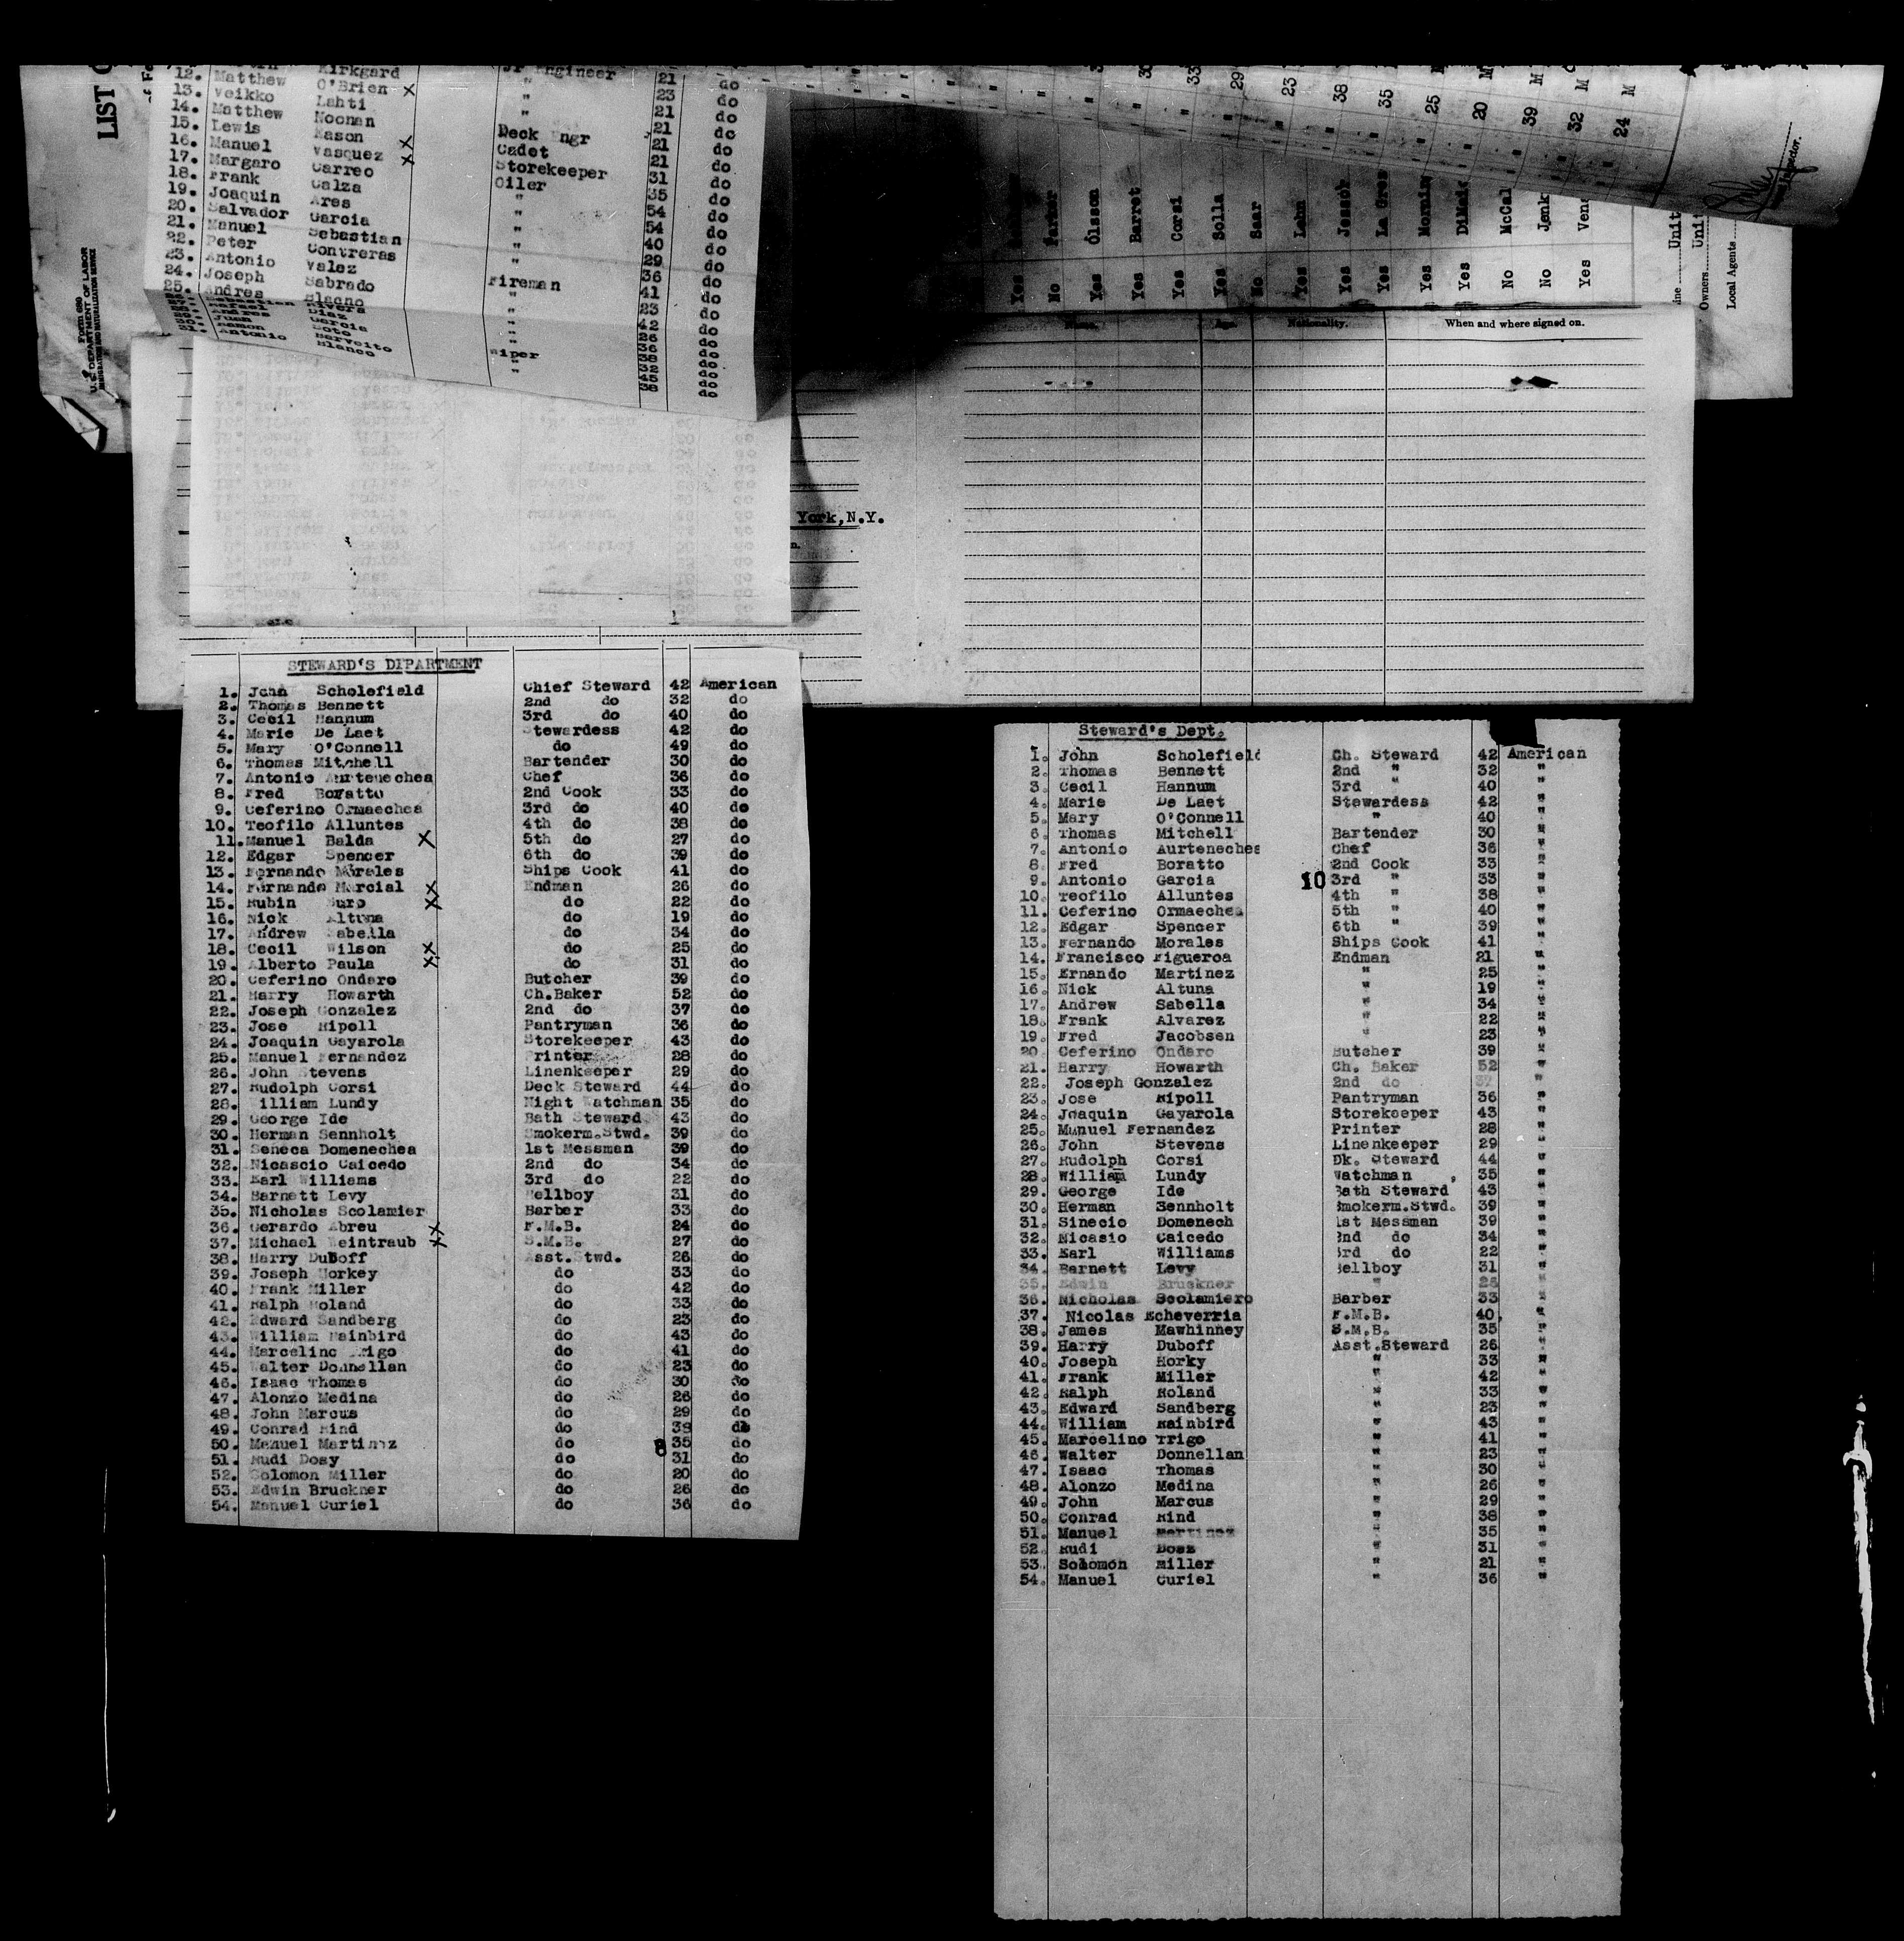 LIST
Form 680
U.S. DEPARTMENT OF LABOR
IMMIGRATION AND NATURALIZATION SERVICE
Kirkgard Jr Engineer 21 do
12. Matthew O'Brien X " 23 do
13. Veikko Lahti " 21 do
14. Matthew Noonan 21 do
15. Lewis Mason Deck Engr 21 do
16. Manuel Vasquez XX Cadet 21 do
17. Margaro Carreo Storekeeper 31 do
18. Frank Calza Oiler 35 do
19. Joaquin Ares " 54 do
20. Salvador Garcia " 54 do
21. Manuel Sebastian " 40 do
22. Peter Contreras " 29 do
23. Antonio Valez " 36 do
24. Joseph Sabrado Fireman 41 do
25. Andres 23 do
Wiper
York, N.Y.
33 29 23 38 35 25 20 39 M 32 M 24 M
Parker No
Olsson Yes
Barret Yes
Corsi Yes
Solla Yes
Saar No
Lehn Yes
Jessob Yes
La Gres Yes
Mornin Yes
DiMaic Yes
McCal No
Jenk No
Vens Yes
Unit
Owners Unit
Local Agents
Inspector.
Name. Age. Nationality. When and where signed on.
STEWARD'S DIPARTMENT
1. John Scholefield Chief Steward 42 American
2. Thomas Bennett 2nd do 32 do
3. Cecil Hannum 3rd do 40 do
4. Marie De Laet Stewardess 42 do
5. Mary O'Connell do 49 do
6. Thomas Mitchell Bartender 30 do
7. Antonio Aurtenechea Chef 36 do
8. Fred Boratto 2nd Cook 33 do
9. Ceferino Ormaechea 3rd do 40 do
10. Teofilo Alluntes 4th do 38 do
11. Manuel Balda X 5th do 27 do
12. Edgar Spencer 6th do 39 do
13. Fernando Morales Ships Cook 41 do
14. Fernando Marcial XX Endman 26 do
15. Rubin Suro XX do 22 do
16. Nick Altuna do 19 do
17. Andrew Sabella do 34 do
18. Cecil Wilson XX do 25 do
19. Alberto Paula XX do 31 do
20. Ceferino Ondaro Butcher 39 do
21. Harry Howarth Ch.Baker 52 do
22. Joseph Gonzalez 2nd do 37 do
23. Jose Ripoll Pantryman 36 do
24. Joaquin Gayarola Storekeeper 43 do
25. Manuel Fernandez Printer 28 do
26. John Stevens Linenkeeper 29 do
27. Rudolph Corsi Deck Steward 44 do
28. William Lundy Night Watchman 35 do
29. George Ide Bath Steward 43 do
30. Herman Sennholt Smokerm.Stwd. 39 do
31. Seneca Domenechea 1st Messman 39 do
32. Nicascio Caicedo 2nd do 34 do
33. Earl Williams 3rd do 22 do
34. Barnett Levy Bellboy 31 do
35. Nicholas Scolamier Barber 33 do
36. Gerardo Abreu XX F.M.B. 24 do
37. Michael Weintraub XX S.M.B. 27 do
38. Harry DuBoff Asst.Stwd. 26 do
39. Joseph Horkey do 33 do
40. Frank Miller do 42 do
41. Ralph Roland do 33 do
42. Edward Sandberg do 23 do
43. William Rainbird do 43 do
44. Marcelino Trigo do 41 do
45. Walter Donnellan do 23 do
46. Isaac Thomas do 30 do
47. Alonzo Medina do 26 do
48. John Marcus do 29 do
49. Conrad Rind do 39 do
50. Manuel Martinez do 8 35 do
51. Rudi Dosy do 31 do
52. Solomon Miller do 20 do
53. Edwin Bruckner do 26 do
54. Manuel Curiel do 36 do
Steward's Dept.
1. John Scholefield Ch. Steward 42 American
2. Thomas Bennett 2nd " 32 "
3. Cecil Hannum 3rd " 40 "
4. Marie De Laet Stewardess 42 "
5. Mary O'Connell " 40 "
6. Thomas Mitchell Bartender 30 "
7. Antonio Aurteneches Chef 36 "
8. Fred Boratto 2nd Cook 33 "
9. Antonio Garcia 10 3rd " 33 "
10. Teofilo Alluntes 4th " 38 "
11. Ceferino Ormaechea 5th " 40 "
12. Edgar Spencer 6th " 39 "
13. Fernando Morales Ships Cook 41 "
14. Francisco Figueroa Endman 21 "
15. Ernando Martinez " 25 "
16. Nick Altuna " 19 "
17. Andrew Sabella " 34 "
18. Frank Alvarez " 22 "
19. Fred Jacobsen " 23 "
20. Ceferino Ondaro Butcher 39 "
21. Harry Howarth Ch. Baker 52 "
22. Joseph Gonzalez 2nd do 37 "
23. Jose Ripoll Pantryman 36 "
24. Joaquin Gayarola Storekeeper 43 "
25. Manuel Fernandez Printer 28 "
26. John Stevens Linenkeeper 29 "
27. Rudolph Corsi Dk. Steward 44 "
28. William Lundy Watchman 35 "
29. George Ide Bath Steward 43 "
30. Herman Sennholt Smokerm.Stwd. 39 "
31. Sinecio Domenech 1st Messman 39 "
32. Nicasio Caicedo 2nd do 34 "
33. Earl Williams 3rd do 22 "
34. Barnett Levy Bellboy 31 "
35. Edwin Bruckner " 26 "
36. Nicholas Scolamiero Barber 33 "
37. Nicolas Echeverria F.M.B. 40 "
38. James Mawhinney S.M.B. 35 "
39. Harry Duboff Asst.Steward 26 "
40. Joseph Horky " 33 "
41. Frank Miller " 42 "
42. Ralph Roland " 33 "
43. Edward Sandberg " 23 "
44. William Rainbird " 43 "
45. Marcelino Trigo " 41 "
46. Walter Donnellan " 23 "
47. Isaac Thomas " 30 "
48. Alonzo Medina " 26 "
49. John Marcus " 29 "
50. Conrad Rind " 38 "
51. Manuel Martinez " 35 "
52. Rudi Dosz " 31 "
53. Solomon Miller " 21 "
54. Manuel Curiel " 36 "